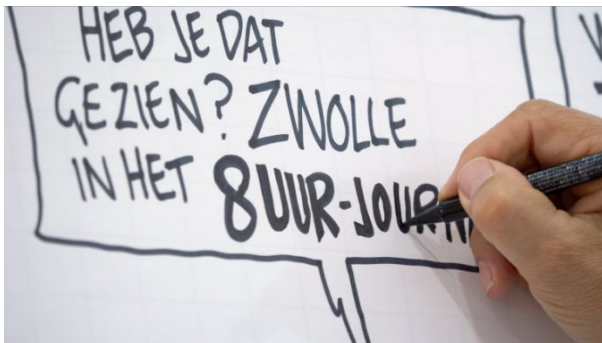 HEB JE DAT
GEZIEN? ZWOLLE
IN HET 8UUR-JOURN